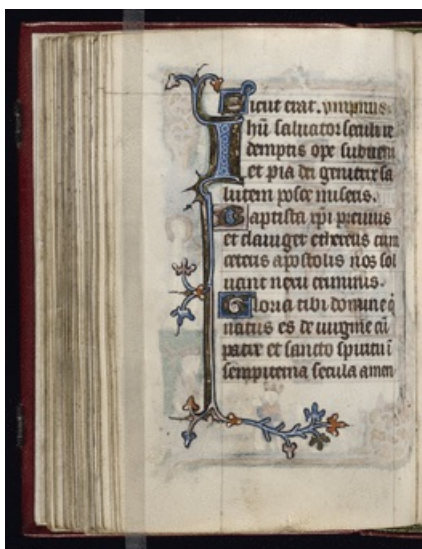 Sicut erat. ympnus.
Ihū saluator seculi re
demptis ope subueni
et pia dei genitrix sa
lutem posce miseris.
Baptista xp̄i preuius
et clauiger ethereus cum
ceteris apostolis nos sol
uant nexu criminis.
Gloria tibi domine q̄
natus es de uirgine cū
patre et sancto spiritu ī
sempiterna secula amen